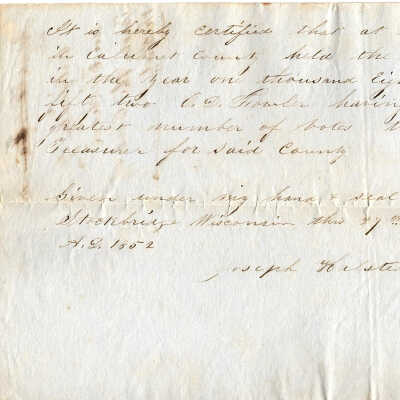 It is hereby certified that at
in Calumet County held the
in the year on thousand Eig
fift two E. D. Fowler havin
greatest number of votes
Treasurer for said County
Given under my hand & seal
Stockbridge Wisconsin this 27
A.D. 1852
Joseph Halste